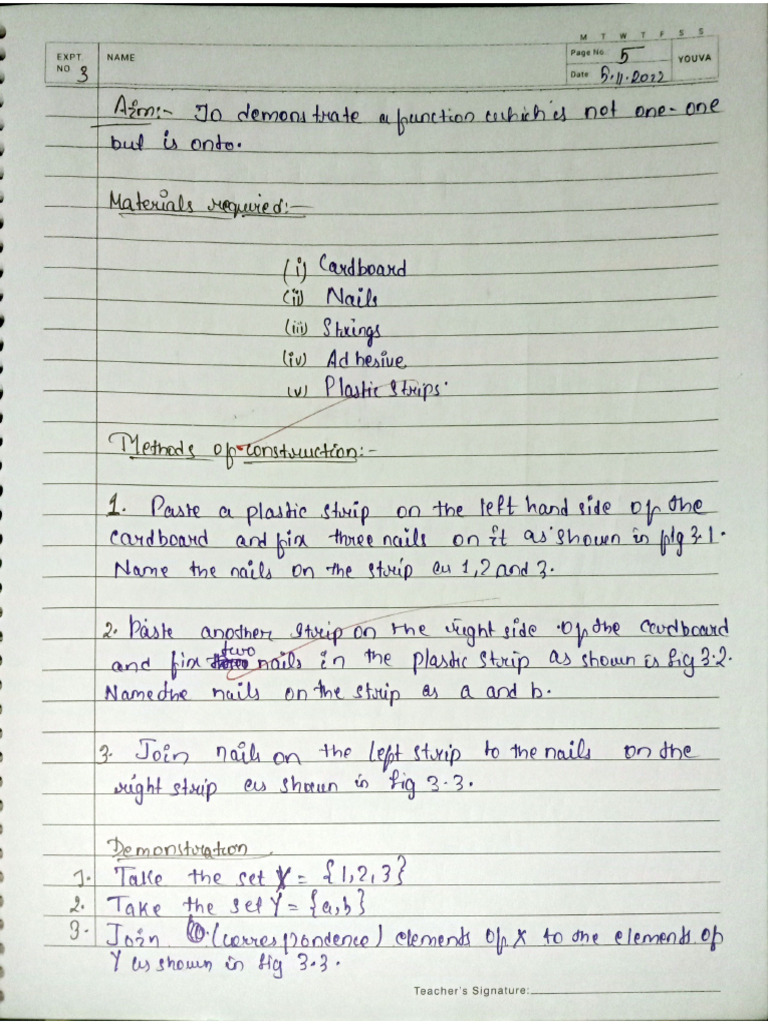 M T W T F S S
EXPT. NO. 3 NAME Page No. 5 YOUVA
Date 5.11.2022
Aim:- To demonstrate a function which is not one-one
but is onto.
Materials required:-
(i) Cardboard
(ii) Nails
(iii) Strings
(iv) Adhesive
(v) Plastic strips.
Methods of construction:-
1. Paste a plastic strip on the left hand side of the
cardboard and fix three nails on it as shown in fig 3.1.
Name the nails on the strip as 1,2 and 3.
2. Paste another strip on the right side of the cardboard
and fix two nails in the plastic strip as shown is fig 3.2.
Name the nails on the strip as a and b.
3. Join nails on the left strip to the nails on the
right strip as shown in fig 3.3.
Demonstration
1. Take the set X = {1,2,3}
2. Take the set Y = {a,b}
3. Join (correspondence) elements of X to the elements of
Y as shown in fig 3.3.
Teacher's Signature: